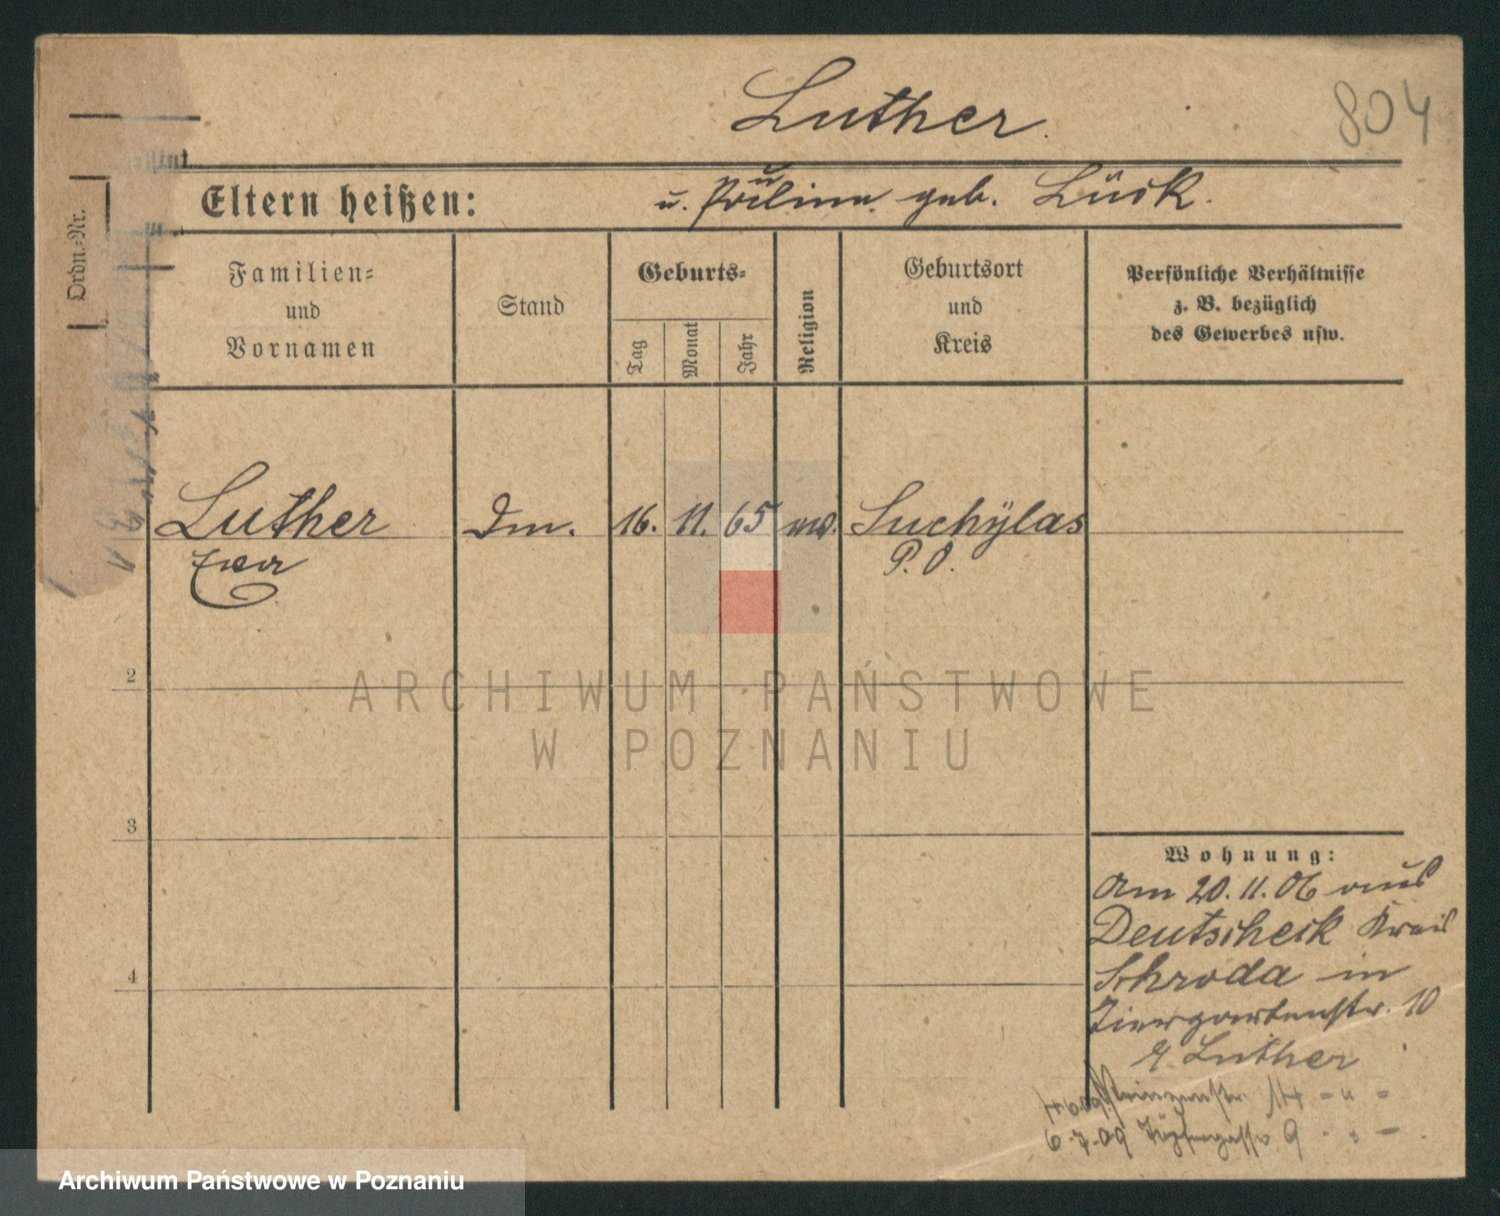 Luther.
804
Eltern heißen:
u. Paulina geb. Lück.
Ordn.-Nr.
Familien-
und
Vornamen
Stand
Geburts-
Tag
Monat
Jahr
Religion
Geburtsort
und
Kreis
Persönliche Verhältnisse
z. B. bezüglich
des Gewerbes usw.
Luther
16. 11. 65
Suchylas
P. O.
2
3
4
Wohnung:
Am 20. 11. 06 aus
Deutscheck Kreis
Schroda in
Tiergartenstr. 10
Luther
Prinzenstr. 14 - " -
6.7.09 Töpfergasse 9
ARCHIWUM PAŃSTWOWE
W POZNANIU
Archiwum Państwowe w Poznaniu